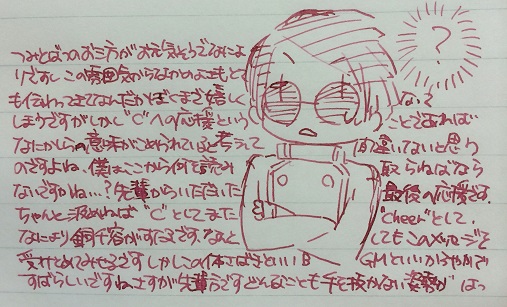 ？
つみとばつのお三方がお元気そうでなによ
りですし、この雰囲気からなかのよさもとて
も伝わってきてなんだかぼくまで嬉しく なって
しまうですがしかし"C"への応援という ことであれば
なにかしらの意味がこめられていると考えて 間違いないと思う
のですよね、僕はここから何を読み 取らねばなら
ないですかね…？先輩からいただいた 最後の応援です、
ちゃんと決めねば"C"としてまた "cheer"として、
なにより 何としてもこのメッセージを
受けとめてみせるです しかしこの体さばきといいB GMといいかろやかで
すばらしいですね、さすが先輩方ですどんなことも手を抜かない姿勢が はっ